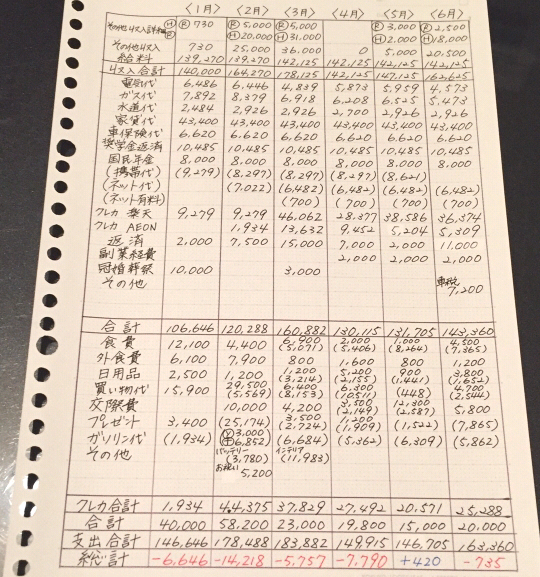 〈1月〉 〈2月〉 〈3月〉 〈4月〉 〈5月〉 〈6月〉
その他収入詳細 Ⓡ 730 Ⓡ 5,000 Ⓡ 5,000 Ⓡ 3,000 Ⓡ 2,500
Ⓗ 20,000 Ⓗ 31,000 Ⓗ 2,000 Ⓗ 18,000
その他収入 730 25,000 36,000 0 5,000 20,500
給料 139,270 139,270 142,125 142,125 142,125 142,125
収入合計 140,000 164,270 178,125 142,125 147,125 162,625
電気代 6,486 6,446 4,839 5,873 5,959 4,573
ガス代 7,892 8,379 6,918 6,208 6,525 5,473
水道代 2,484 2,926 2,926 2,700 2,926 2,926
家賃代 43,400 43,400 43,400 43,400 43,400 43,400
車保険代 6,620 6,620 6,620 6,620 6,620 6,620
奨学金返済 10,485 10,485 10,485 10,485 10,485 10,485
国民年金 8,000 8,000 8,000 8,000 8,000 8,000
(携帯代) (9,279) (8,297) (8,297) (8,297) (8,621)
(ネット代) (7,022) (6,482) (6,482) (6,482) (6,482)
(ネット有料) (700) (700) (700) (700)
クレカ 楽天 9,279 9,279 46,062 28,377 38,586 36,374
クレカ AEON 1,934 13,632 9,452 5,204 5,309
返済 2,000 7,500 15,000 7,000 2,000 11,000
副業経費 2,000 2,000 2,000
冠婚葬祭 10,000 3,000
その他 車税 7,200
合計 106,646 120,288 160,882 130,115 131,705 143,360
食費 12,100 4,400 6,900 2,000 1,000 4,500
(5,071) (5,406) (8,264) (7,365)
外食費 6,100 7,900 800 1,600 800 1,200
日用品 2,500 1,200 1,200 5,200 900 3,800
(3,214) (2,155) (1,441) (1,652)
買い物代 15,900 29,500 6,400 6,300 4,700
(5,569) (8,153) (10,511) (448) (2,544)
交際費 10,000 4,200 3,500 12,300 5,800
(2,149) (2,587)
プレゼント 3,400 (25,174) 3,500 1,200 (1,522) (7,865)
(2,724) (1,909)
ガソリン代 (1,934) 3,000 (6,684) (5,362) (6,309) (5,862)
6,852
その他 バッテリー (3,780) インテリア (11,983)
お祝い 5,200
クレカ合計 1,934 44,375 37,829 27,492 20,571 25,288
合計 40,000 58,200 23,000 19,800 15,000 20,000
支出合計 146,646 178,488 183,882 149,915 146,705 163,360
総計 -6,646 -14,218 -5,757 -7,790 +420 -735